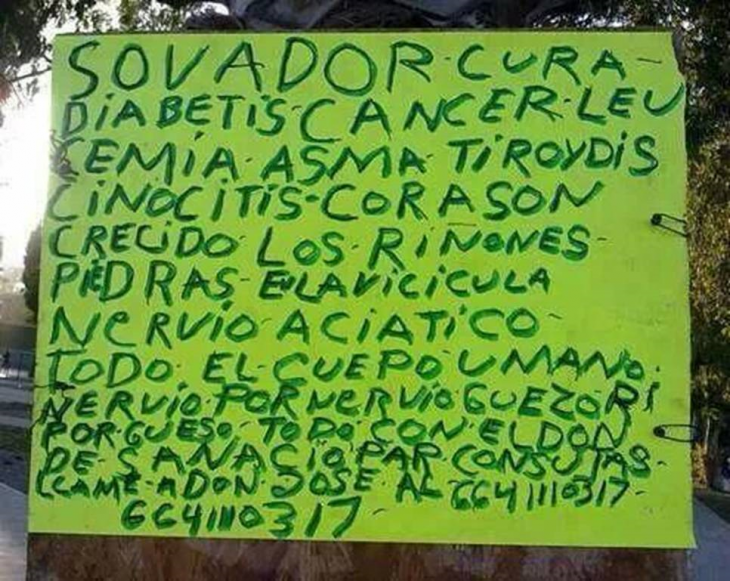 SOVADOR·CURA-
DIABETIS·CANCER·LEU
CEMIA·ASMA·TIROYDIS
CINOCITIS-CORASON
CRECIDO·LOS·RIÑONES-
PIEDRAS·ENLAVICICULA
NERVIO·ACIATICO-
TODO·EL·CUEPO·UMANO·
NERVIO·POR·NERVIO·GUEZO
POR·GUESO·TODO·CON·EL·DON
DE·SANACIO·PAR·CONSUTAS-
LLAME·ADON·JOSE·AL·6641110317-
6641110317